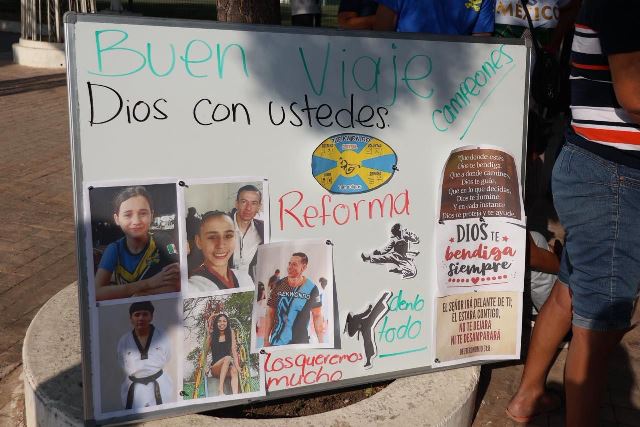 MEXICO
Buen Viaje
campeones
Dios con ustedes.
Reforma
denlo
todo
los queremos
mucho
Que donde estés,
Dios te bendiga.
Que a donde camines,
Dios te guíe.
Que en lo que decidas,
Dios te ilumine.
Y en cada instante
Dios te proteja y te ayude.
DIOS TE
bendiga
siempre
EL SEÑOR IRÁ DELANTE DE TI,
ÉL ESTARÁ CONTIGO,
NO TE DEJARÁ
NI TE DESAMPARARÁ